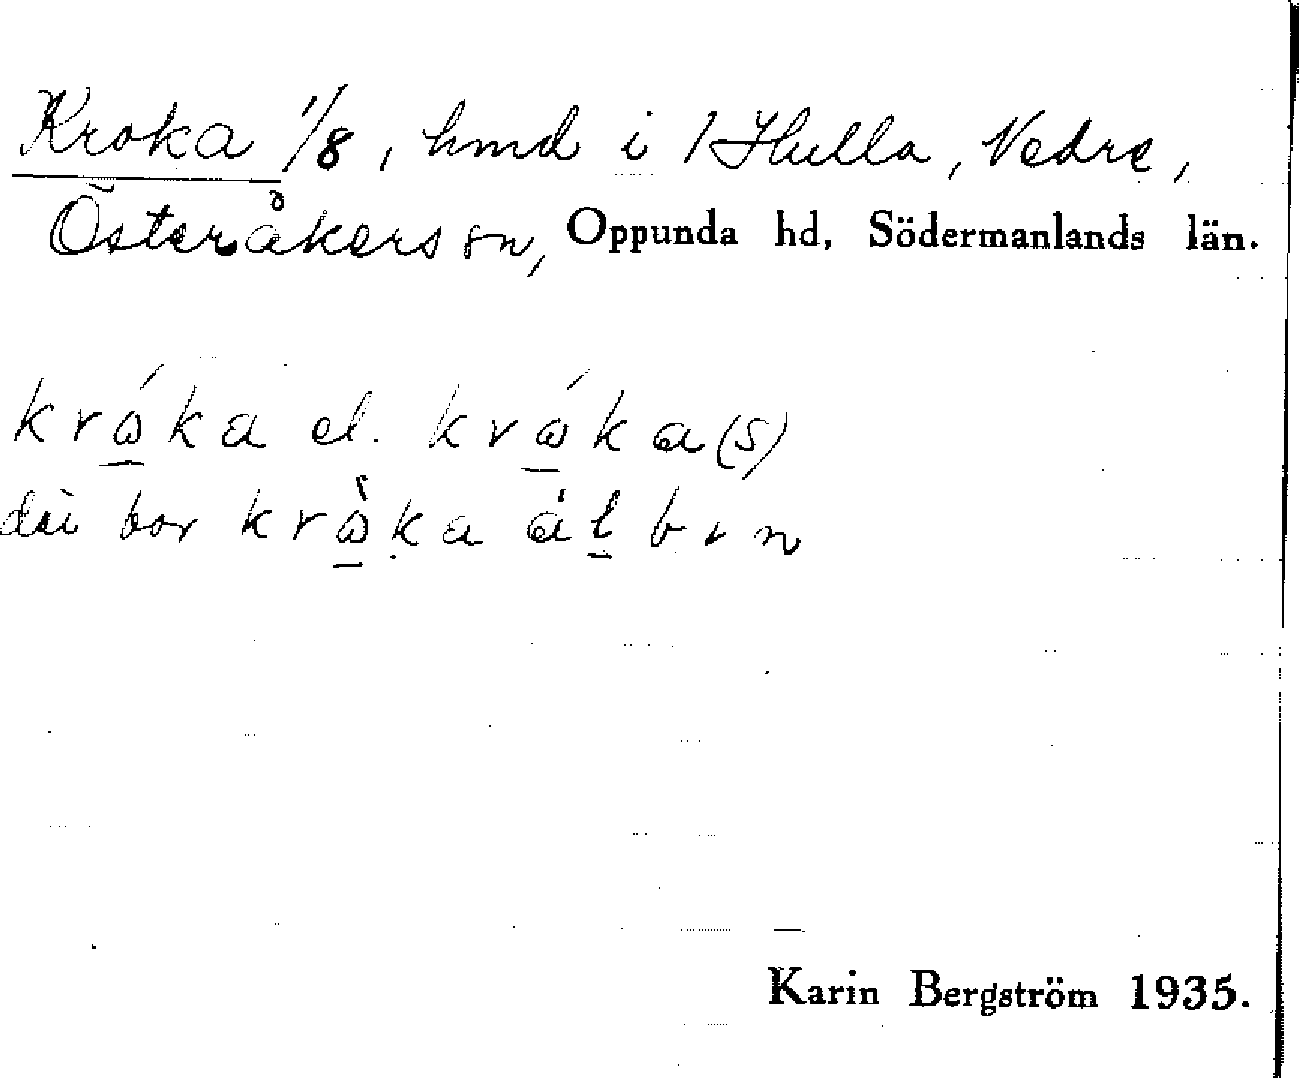 Kroka 1/8, hmd i 1 Hulla, Vedre,
Österåkers sn, Oppunda hd, Södermanlands län.
krώka el. krώka(s)
dai bor krὼka ȧlbrn
Karin Bergström 1935.